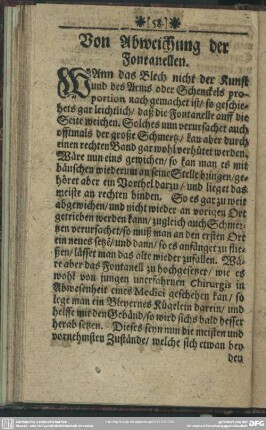 [58]
Von Abweichung der
Fontanellen.
WAnn das Blech nicht der Kunst
und des Arms oder Schenckels pro-
portion nach gemachet ist/ so geschie-
hets gar leichtlich/ daß die Fontanelle auff die
Seite weichen. Solches nun verursachet auch
offtmals der große Schmertz/ kan aber durch
einen rechten Band gar wohl verhütet werden.
Wäre nun eins gewichen/ so kan man es mit
häuschen wiederum an seine Stelle bringen/ ge-
höret aber ein Vorthel darzu/ und lieget das
meiste an rechten binden. So es gar zu weit
abgewichen/ und nicht wieder an vorigen Ort
getrieben werden kann/ zugleich auch Schmer-
tzen verursachet/ so muß man an den ersten Ort
ein neues setzē/ und dann/ so es anfänget zu flie-
ßen/ lässet man das alte wieder zufallen. Wä-
re aber das Fontanell zu hochgesetzet/ wie es
wohl von jungen unerfahrnen Chirurgis in
Abwesenheit eines Medici geschehen kan/ so
lege man ein Bleyernes Kügelein darein/ und
helffe mit den Gebänd/ so wird sichs bald besser
herab setzen. Dieses seyn nun die meisten und
vornehmsten Zustände/ welche sich etwan bey
den